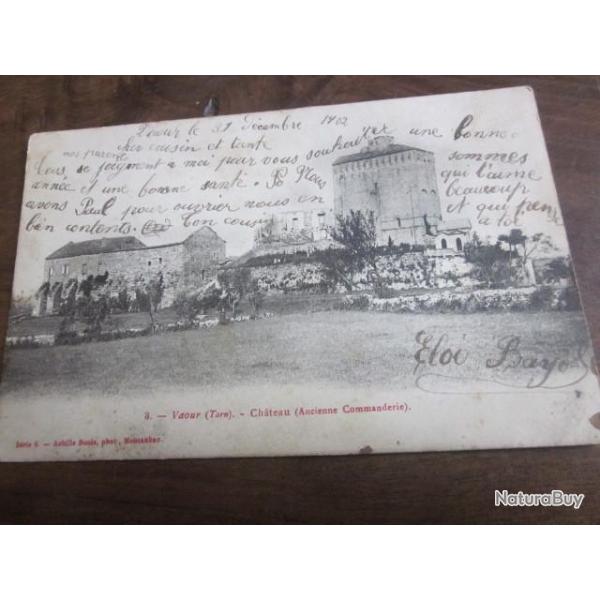 Vaour le 31 Décembre 1902
cher cousin et tante
nos parents
se joignent a moi pour vous souhaiter une bonne
année et une bonne santé. Nous sommes
avons Paul pour ouvrier nous en qui t'aime
bèn contents. Ton cousin beaucoup
et qui pense
a toi
Eloi
8. — Vaour (Tarn). - Château (Ancienne Commanderie).
Série 6. — Achille Bouis, phot., Montauban.
NaturaBuy